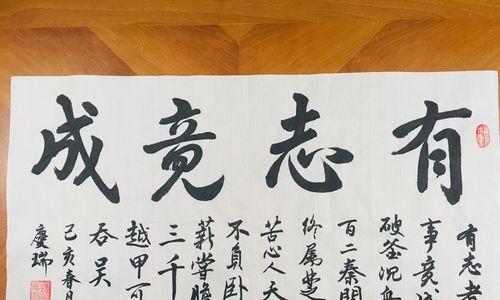 有志竟成
有志者
事竟成
破釜沉舟
百二秦関
终属楚
苦心人天
不负卧
薪嘗膽
三千
越甲可
吞吴
己亥春月
慶瑞